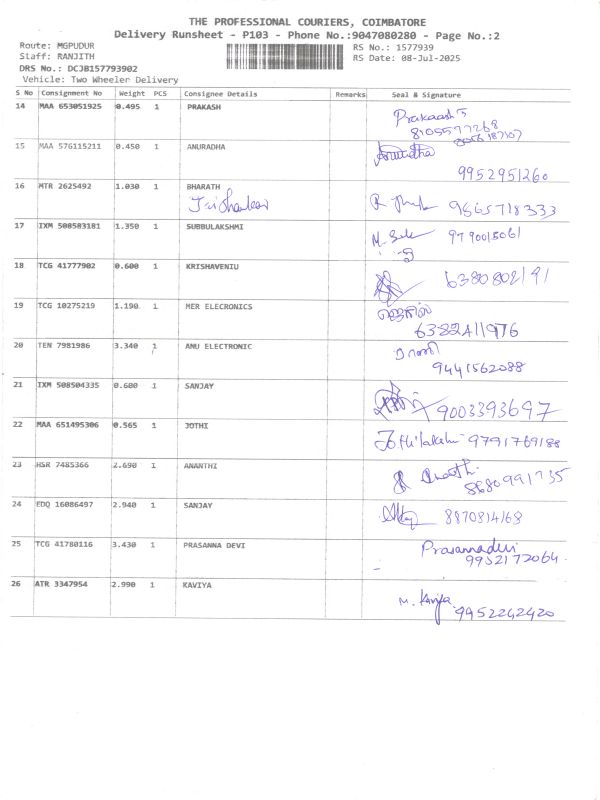 THE PROFESSIONAL COURIERS, COIMBATORE
Delivery Runsheet - P103 - Phone No.:9047080280 - Page No.:2
Route: MGPUDUR
RS No.: 1577939
Staff: RANJITH
RS Date: 08-Jul-2025
DRS No.: DCJB157793902
Vehicle: Two Wheeler Delivery
S No Consignment No Weight PCS Consignee Details Remarks Seal & Signature
14 MAA 653051925 0.495 1 PRAKASH
8105577268
15 MAA 576115211 0.450 1 ANURADHA Anuradha
9952951260
16 MTR 2625492 1.030 1 BHARATH
9865718333
17 IXM 508583181 1.350 1 SUBBULAKSHMI
9790018061
18 TCG 41777902 0.600 1 KRISHAVENIU
6380802191
19 TCG 10275219 1.190 1 MER ELECRONICS
6382411976
20 TEN 7981986 3.340 1 ANU ELECTRONIC
9441562088
21 IXM 508504335 0.600 1 SANJAY
9003393697
22 MAA 651495306 0.565 1 JOTHI
Jothilakshmi 9791769188
23 HSR 7485366 2.690 1 ANANTHI
8680991735
24 EDQ 16086497 2.940 1 SANJAY
8870814168
25 TCG 41780116 3.430 1 PRASANNA DEVI Prasannadevi
9952172064
26 ATR 3347954 2.990 1 KAVIYA
M. Kaviya
9952242420